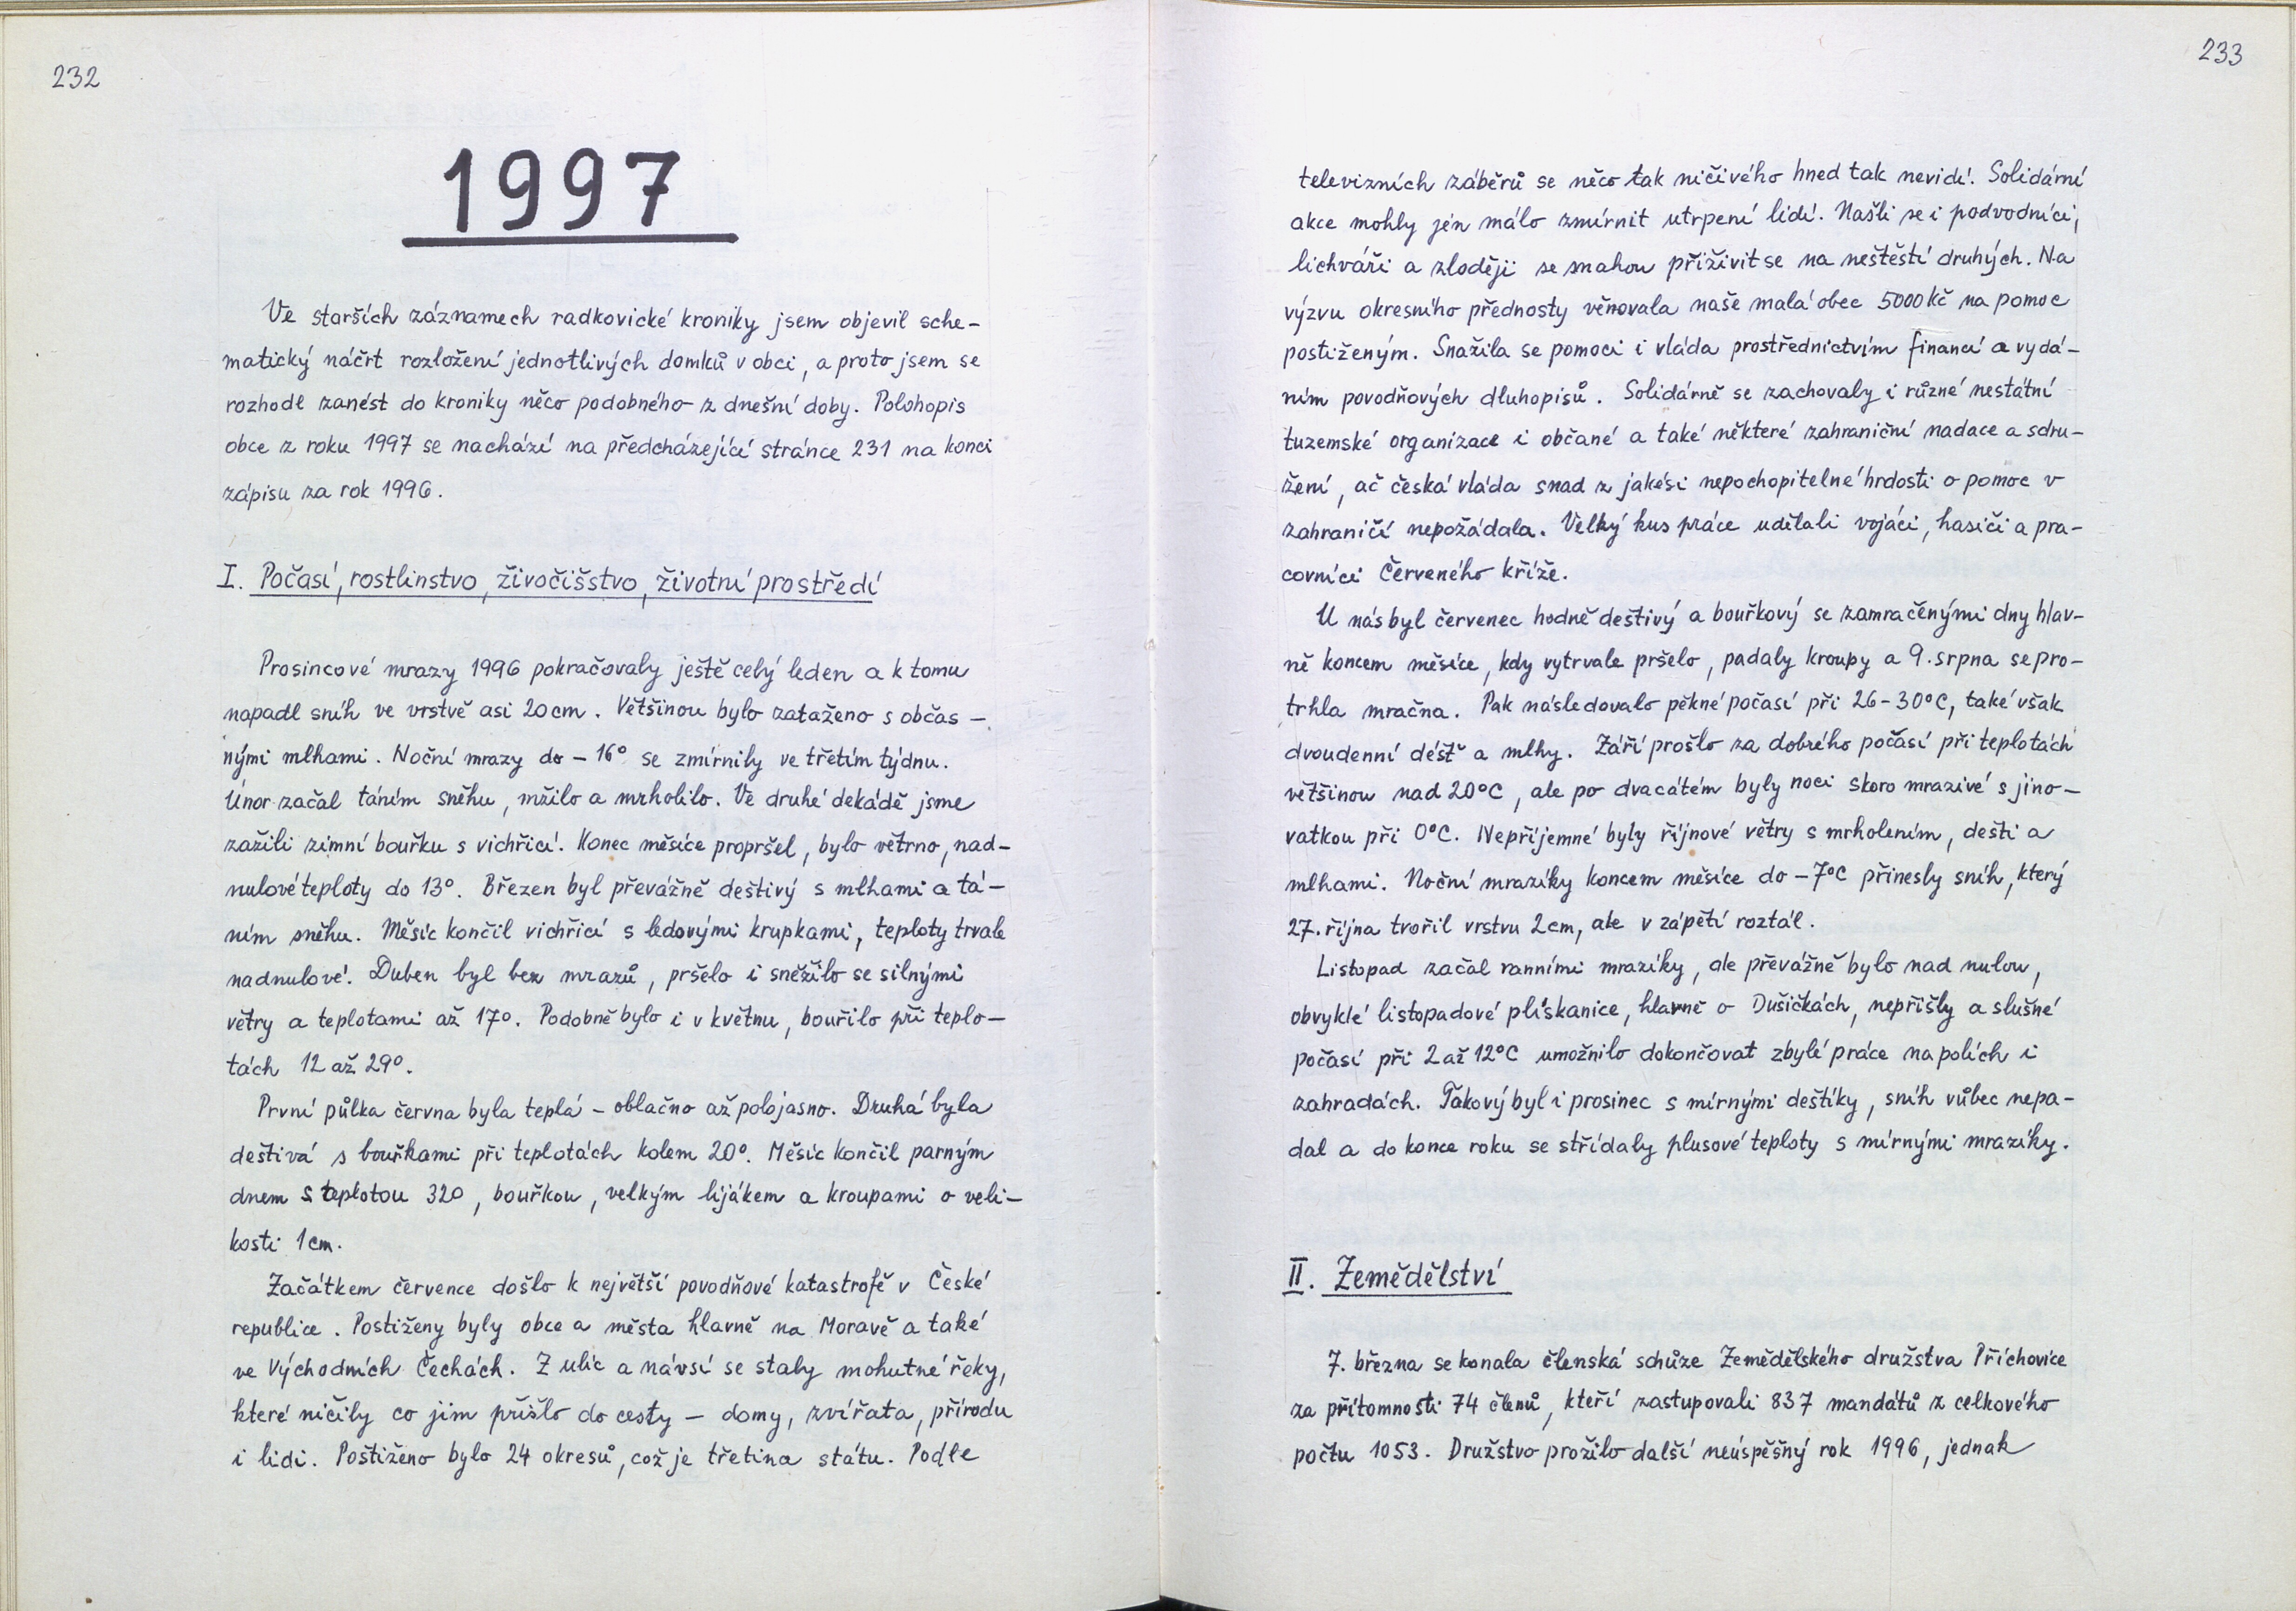 232
1997
Ve starších záznamech radkovické kroniky jsem objevil sche-
matický náčrt rozložení jednotlivých domků v obci, a proto jsem se
rozhodl zanést do kroniky něco podobného z dnešní doby. Polohopis
obce z roku 1997 se nachází na předcházející stránce 231 na konci
zápisu za rok 1996.
I. Počasí, rostlinstvo, živočišstvo, životní prostředí
Prosincové mrazy 1996 pokračovaly ještě celý leden a k tomu
napadl sníh ve vrstvě asi 20cm. Většinou bylo zataženo s občas-
nými mlhami. Noční mrazy do -16° se zmírnily ve třetím týdnu.
Únor začal táním sněhu, mžilo a mrholilo. Ve druhé dekádě jsme
zažili zimní bouřku s vichřicí. Konec měsíce propršel, bylo větrno, nad-
nulové teploty do 13°. Březen byl převážně deštivý s mlhami a tá-
ním sněhu. Měsíc končil vichřicí s ledovými krupkami, teploty trvale
nadnulové. Duben byl bez mrazů, pršelo i sněžilo se silnými
větry a teplotami až 17°. Podobně bylo i v květnu, bouřilo při teplo-
tách 12 až 29°.
První půlka června byla teplá - oblačno až polojasno. Druhá byla
deštivá s bouřkami při teplotách kolem 20°. Měsíc končil parným
dnem s teplotou 32°, bouřkou, velkým lijákem a kroupami o veli-
kosti 1cm.
Začátkem července došlo k největší povodňové katastrofě v České
republice. Postiženy byly obce a města hlavně na Moravě a také
ve Východních Čechách. Z ulic a návsí se staly mohutné řeky,
které ničily co jim přišlo do cesty - domy, zvířata, přírodu
i lidi. Postiženo bylo 24 okresů, což je třetina státu. Podle
233
televizních záběrů se něco tak ničivého hned tak nevidí. Solidární
akce mohly jen málo zmírnit utrpení lidí. Našli se i podvodníci,
lichváři a zloději se snahou přiživit se na neštěstí druhých. Na
výzvu okresního přednosty věnovala naše malá obec 5000 Kč na pomoc
postiženým. Snažila se pomoci i vláda prostřednictvím financí a vydá-
ním povodňových dluhopisů. Solidárně se zachovaly i různé nestátní
tuzemské organizace i občané a také některé zahraniční nadace a sdru-
žení, ač česká vláda snad z jakési nepochopitelné hrdosti o pomoc v
zahraničí nepožádala. Velký kus práce udělali vojáci, hasiči a pra-
covníci Červeného kříže.
U nás byl červenec hodně deštivý a bouřkový se zamračenými dny hlav-
ně koncem měsíce, kdy vytrvale pršelo, padaly kroupy a 9. srpna se pro-
trhla mračna. Pak následovalo pěkné počasí při 26-30°C, také však
dvoudenní déšť a mlhy. Září prošlo za dobrého počasí při teplotách
většinou nad 20°C, ale po dvacátém byly noci skoro mrazivé s jino-
vatkou při 0°C. Nepříjemné byly říjnové větry s mrholením, dešti a
mlhami. Noční mrazíky koncem měsíce do -7°C přinesly sníh, který
27. října tvořil vrstvu 2cm, ale v zápětí roztál.
Listopad začal ranními mrazíky, ale převážně bylo nad nulou,
obvyklé listopadové plískanice, hlavně o Dušičkách, nepřišly a slušné
počasí při 2 až 12°C umožnilo dokončovat zbylé práce na polích i
zahradách. Takový byl i prosinec s mírnými deštíky, sníh vůbec nepa-
dal a do konce roku se střídaly plusové teploty s mírnými mrazíky.
II. Zemědělství
7. března se konala členská schůze Zemědělského družstva Příchovice
za přítomnosti 74 členů, kteří zastupovali 837 mandátů z celkového
počtu 1053. Družstvo prožilo další neúspěšný rok 1996, jednak